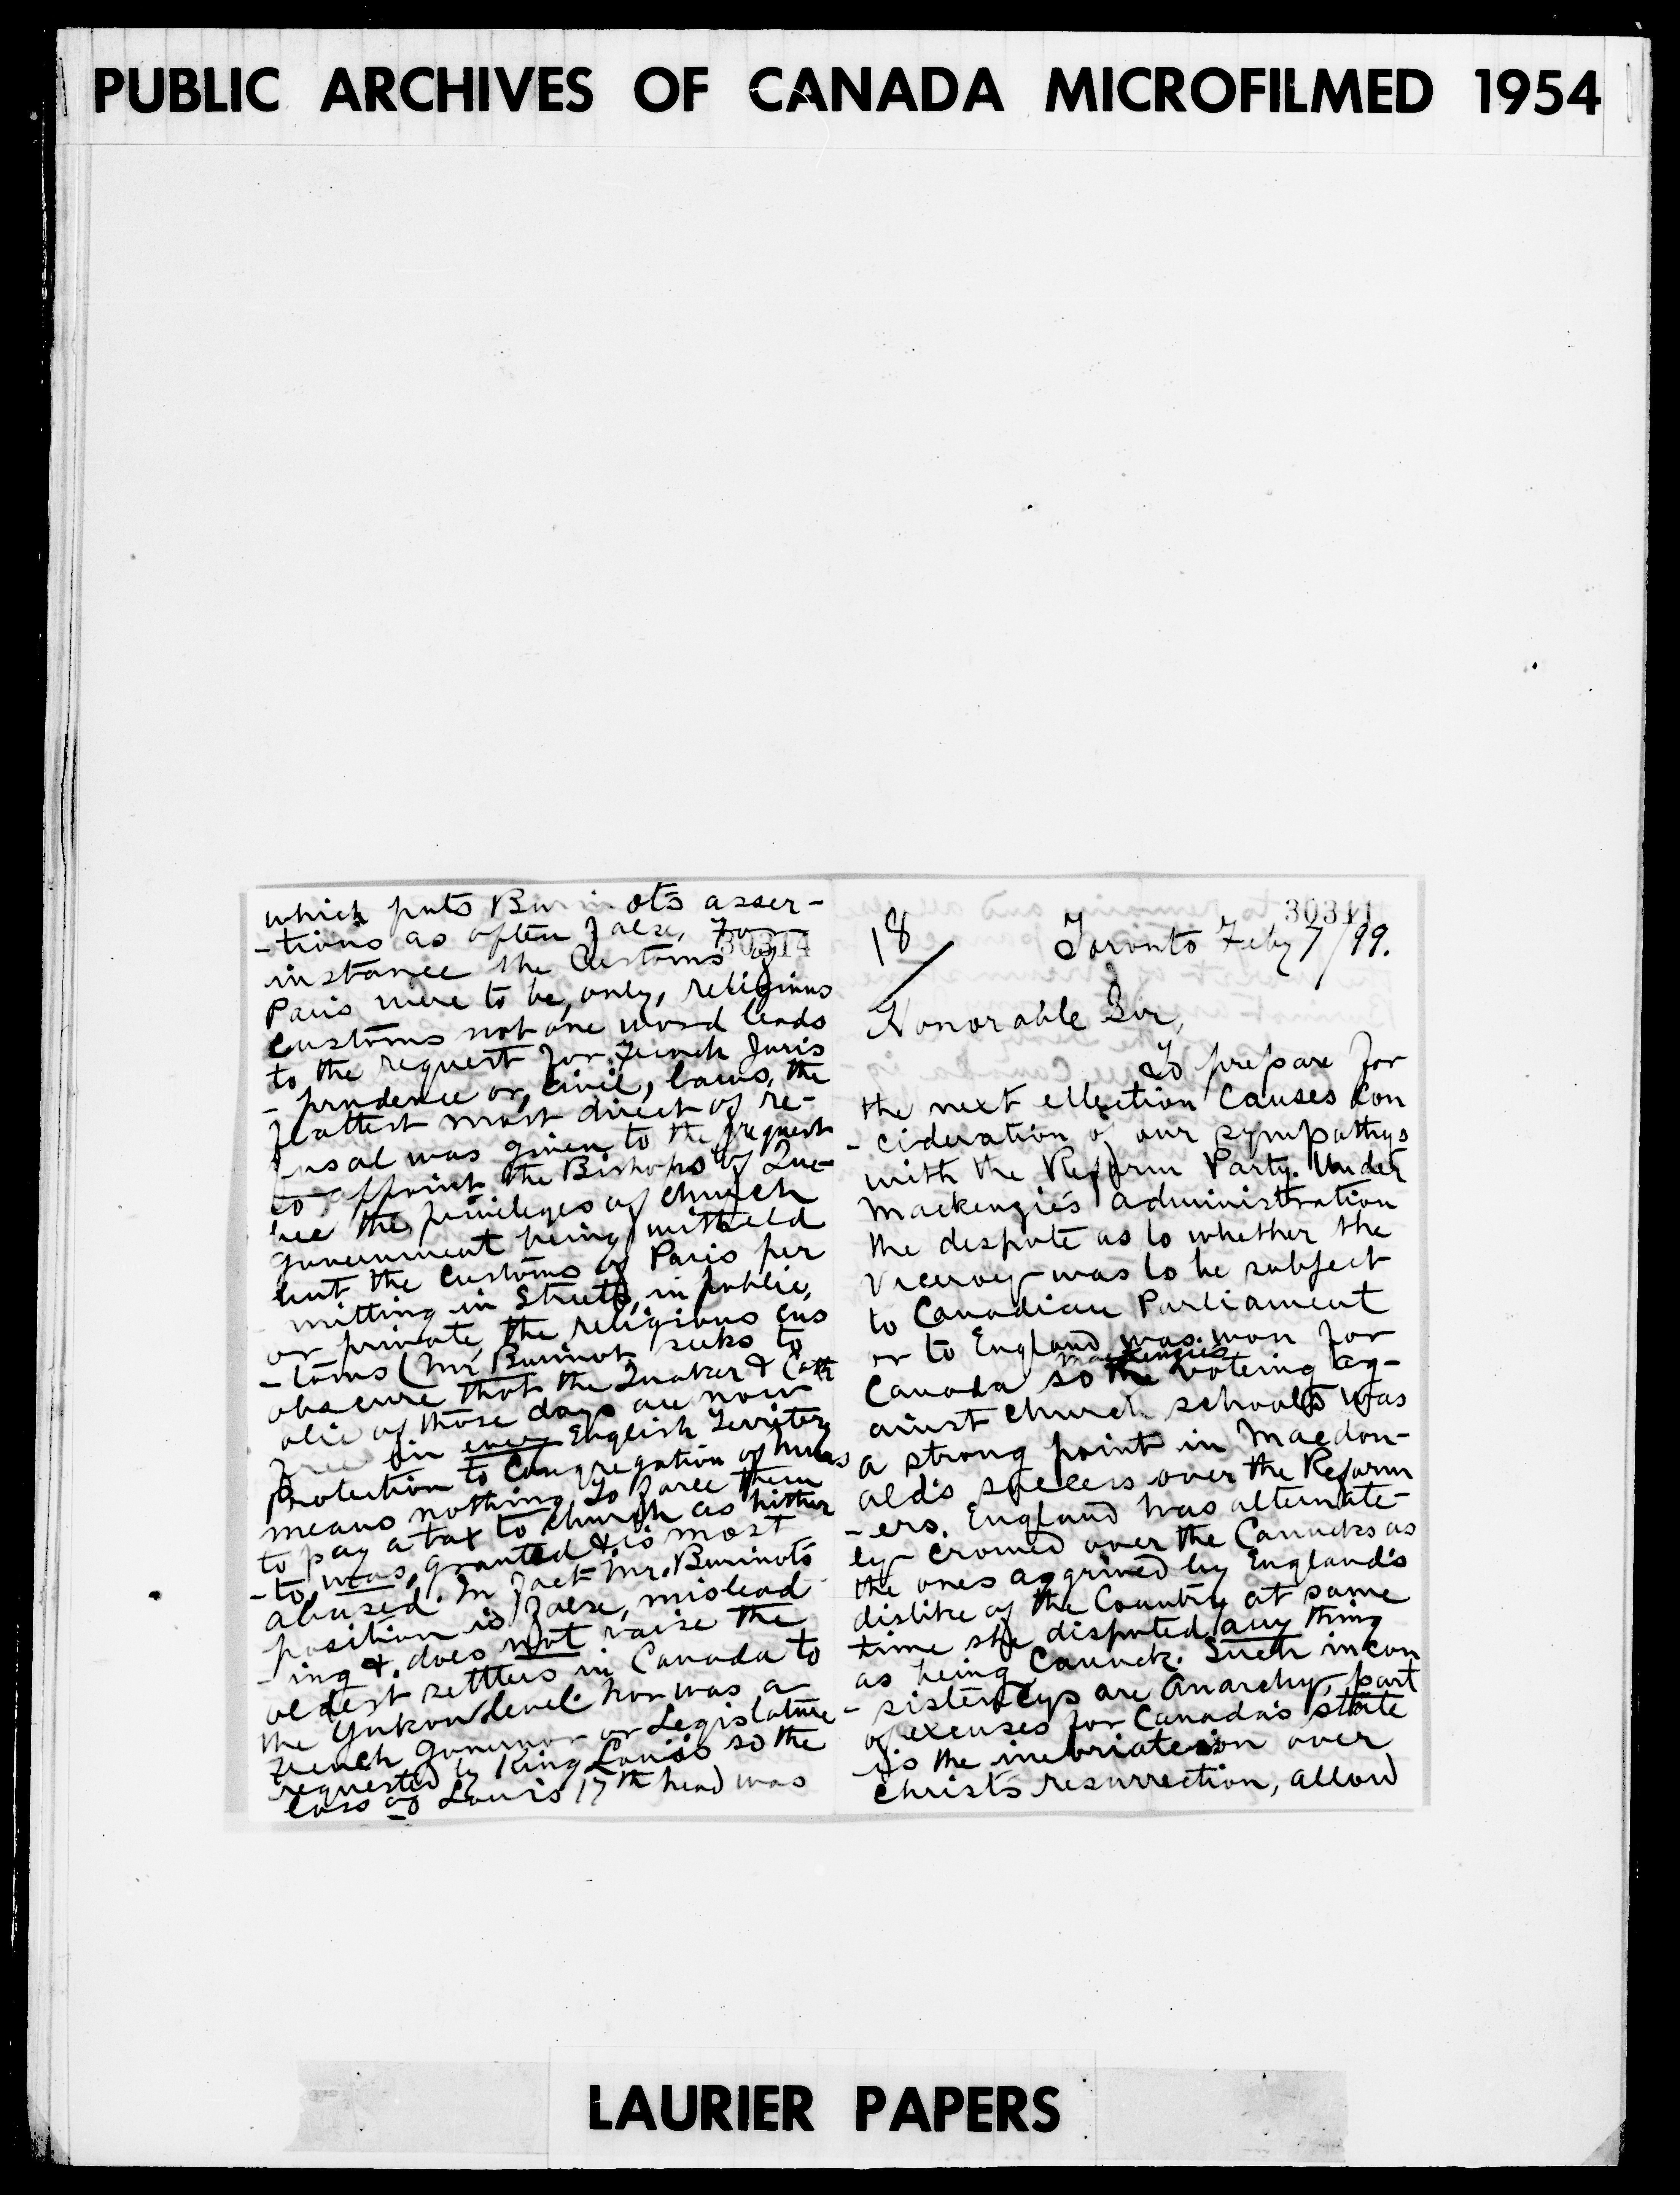 PUBLIC ARCHIVES OF CANADA MICROFILMED 1954
which puts Bur in ots asser-
-tions as often false, For
30314
instance the Customs of
Paris were to be, only, religious
customs not one word leads
to the request for French Juris
-prudence or, civil, laws, the
flattest most direct of re-
fusal was given to the request
to appoint the Bishops of Que-
bec the privileges of church
government being witheld
but the customs of Paris per
mitting in Streets, in public,
or private, the religious cus
-toms (Mr Burinot seeks to
obscure that the Quaker & Cath
olic of those days are now
free in every English Territory
Protection to Congregation of Nuns
means nothing to force them
to pay a tax to church as hither
-to, was, granted & is most
abused. In fact Mr. Burinot's
position is false, mislead
-ing & does not raise the
oldest settlers in Canada to
the Yukon level. nor was a
French Governor or Legislature
requested by King Louis so the
loss of Louis 17th head was
30311
18/
Toronto Feby 7/99.
Honorable Sir,
To prepare for
the next ellection causes con
-cideration of our sympathys
with the Reform Party. Under
Mackenzie's administration
the despute as to whether the
Viceroy was to be subject
to Canadian Parliament
or to England was won for
Mackenzies
Canada so the voteing ag-
ainst church schools was
a strong point in Macdon-
ald's success over the Reform
-ers. England was alternate-
ly crowed over the Canucks as
the ones aggrived by England's
dislike of the Country at same
time she disputed any thing
as being Canuck. Such incon
-sistencys are Anarchy, part
of excuses for Canada's state
is the inebriation over
Christ's resurrection, allow
LAURIER PAPERS